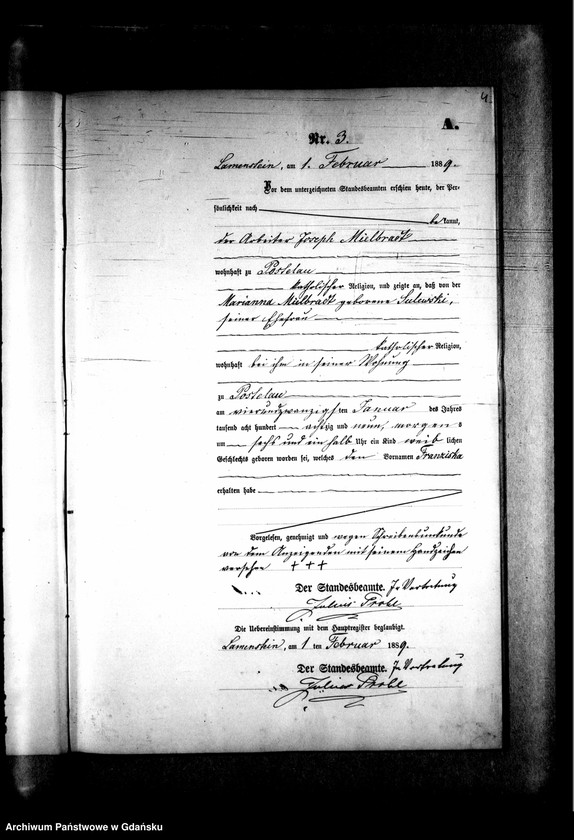 4
A.
Nr. 3.
Lamenstein, am 1. Februar 1889.
Vor dem unterzeichneten Standesbeamten erschien heute, der Per-
sönlichkeit nach
bekannt,
der Arbeiter Joseph Mülbradt
wohnhaft zu Postelau
katholischer Religion, und zeigte an, daß von der
Marianna Mülbradt geborene Sulewski,
seiner Ehefrau
katholischer Religion,
wohnhaft bei ihm in seiner Wohnung
zu Postelau
am vierundzwanzigsten Januar des Jahres
tausend acht hundert achtzig und neun, morgens
um sechs und ein halb Uhr ein Kind weiblichen
Geschlechts geboren worden sei, welches den Vornamen Franziska
erhalten habe
Vorgelesen, genehmigt und wegen Schreibensunkunde
von dem Anzeigenden mit seinem Handzeichen
versehen + + +
Der Standesbeamte. In Vertretung
Julius
Die Uebereinstimmung mit dem Hauptregister beglaubigt.
Lamenstein, am 1 ten Februar 1889.
Der Standesbeamte. In Vertretung
Julius
Archiwum Państwowe w Gdańsku